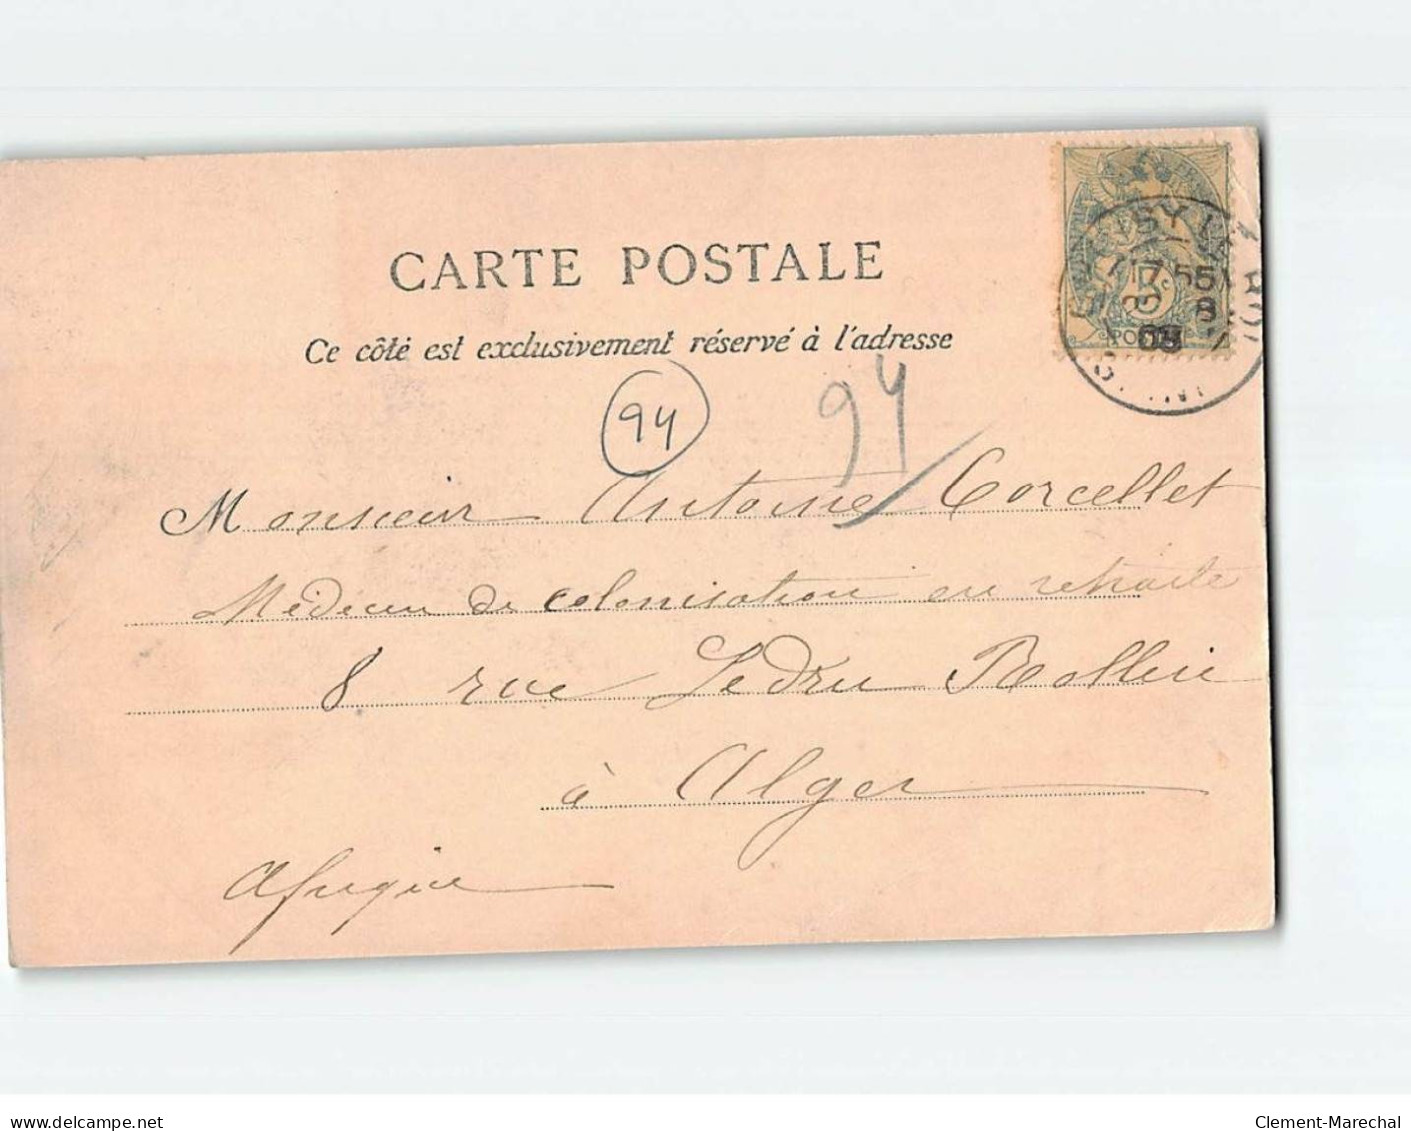 CARTE POSTALE
Ce côté est exclusivement réservé à l'adresse
5c
7 55
8
03
94
94
Monsieur Antoine Corcellet
Médecin de colonisation en retraite
8 rue Ledru Rollin
à Alger
Afrique
delcampe.net
Clement-Marechal